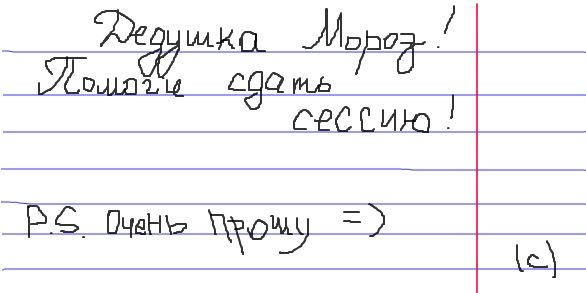 Дедушка Мороз!
Помоги сдать
сессию!
P.S. Очень прошу =)
(с)